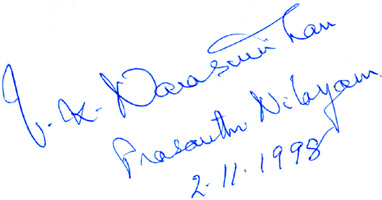 V. K. Narasimhan
Prasanthi Nilayam
2.11.1998